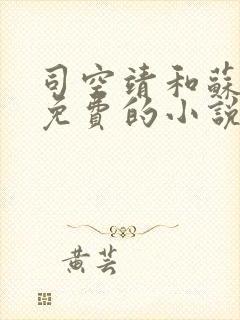 司空靖和蘇
免費的小說
黃芸